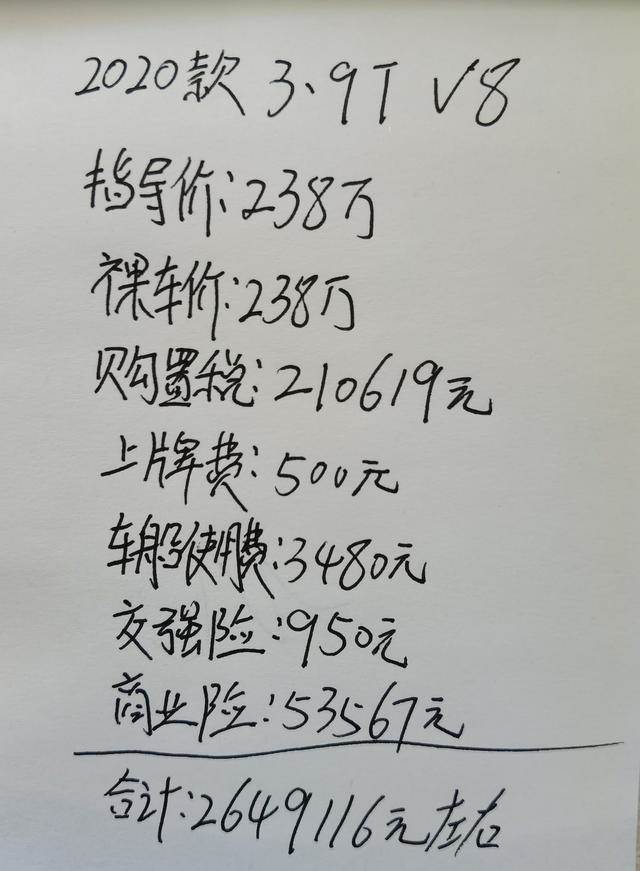 2020款 3.9T V8
指导价:238万
裸车价:238万
购置税:210619元
上牌费:500元
车船使用费:3480元
交强险:950元
商业险:53567元
合计:2649116元左右